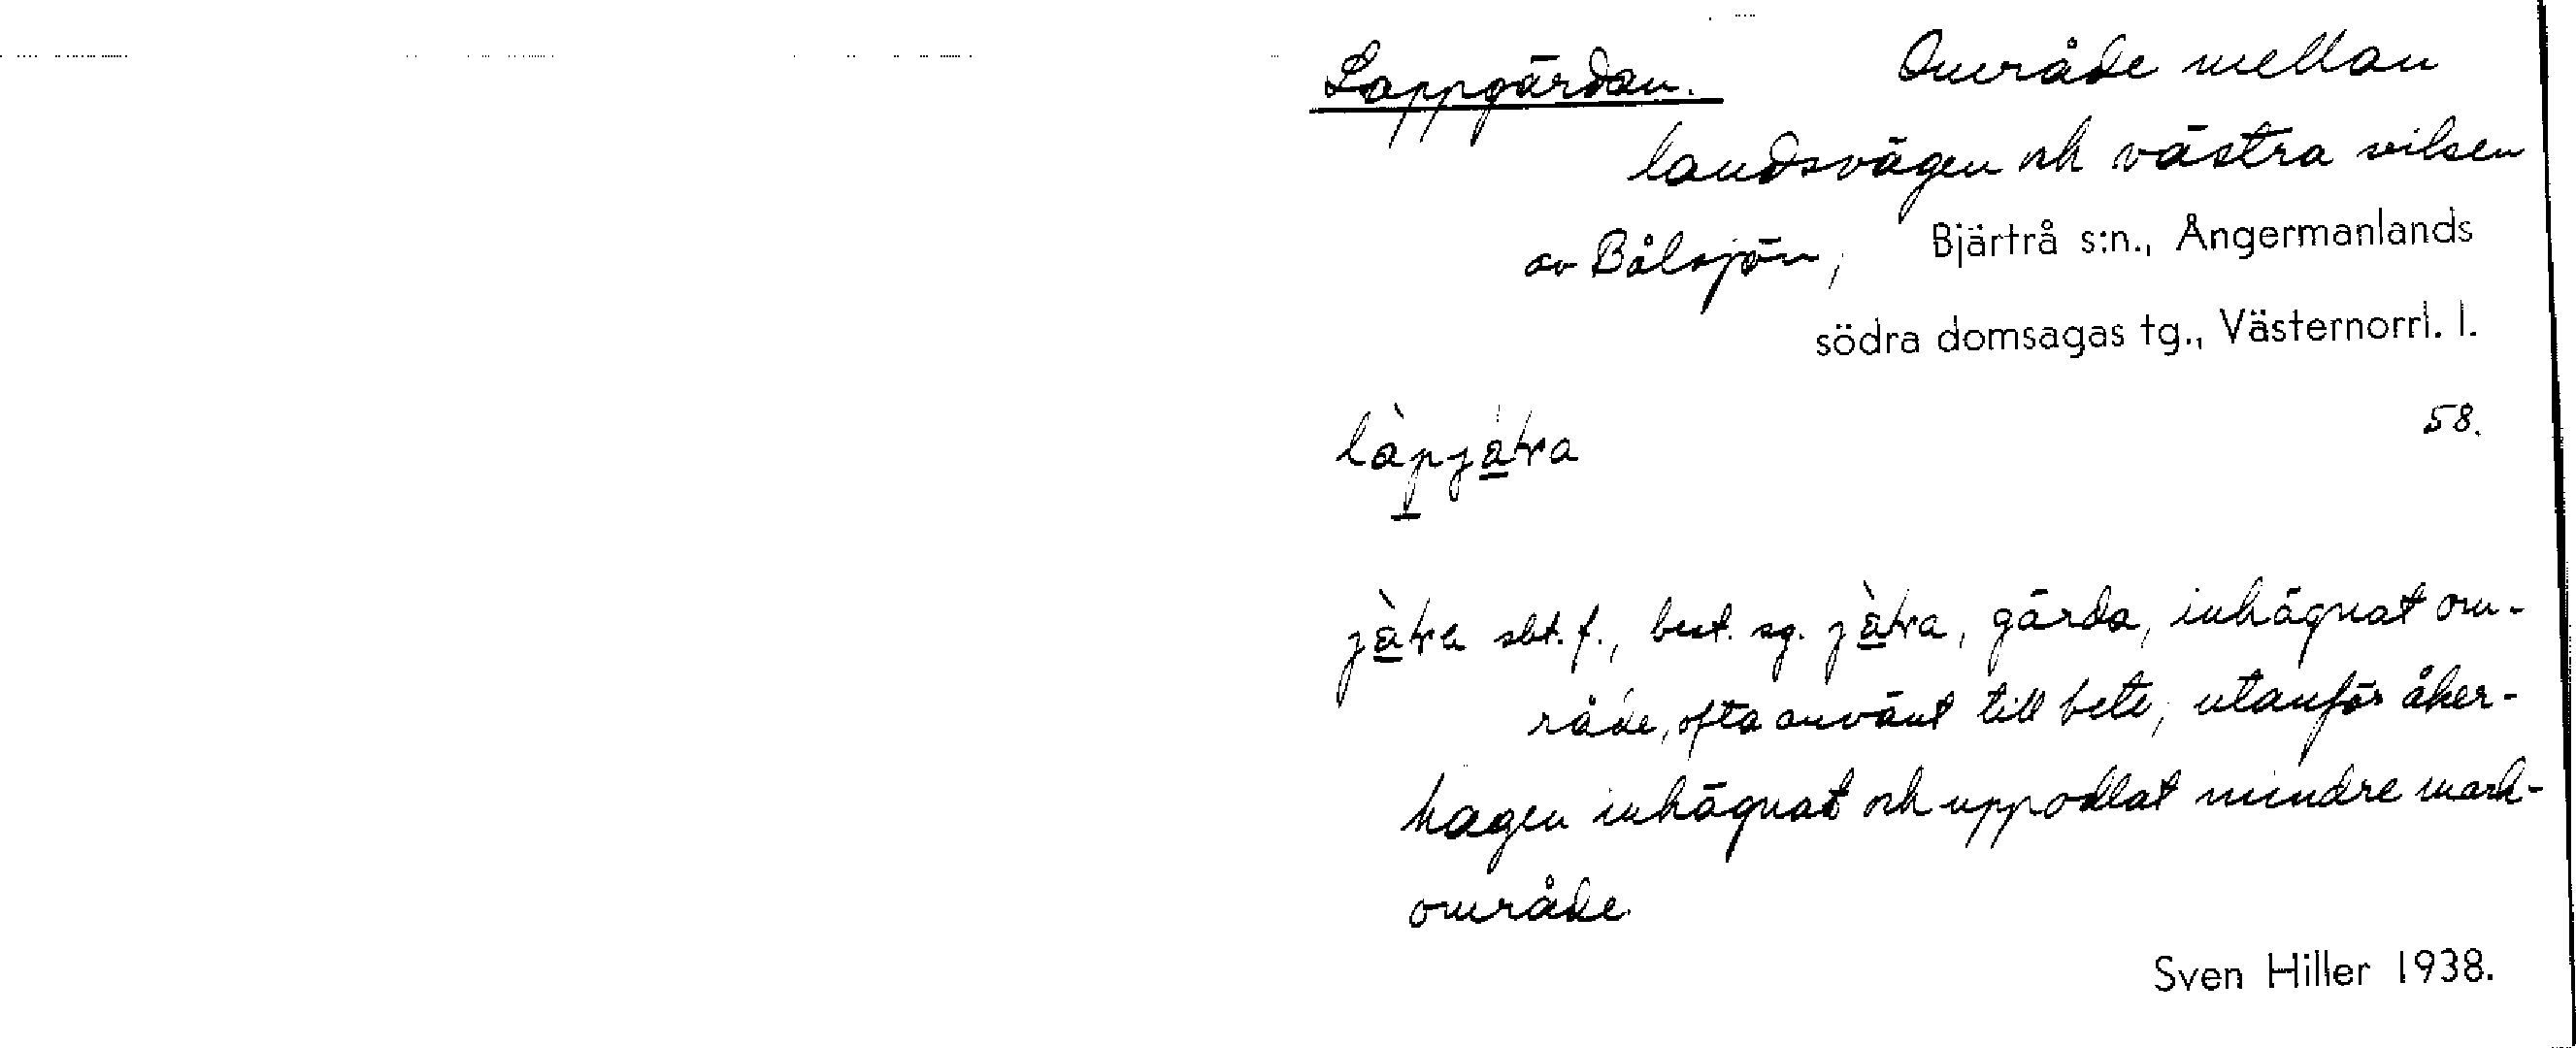 Lappgärdan. Område mellan
landsvägen och västra
av Bålsjön, Bjärtrå s:n., Ångermanlands
södra domsagas tg., Västernorrl. l.
58.
sbt. f., best. sg. gärda, inhägnat om-
råde, ofta använt till bete; utanför åker-
hagen inhägnat och uppodlat mindre mark-
område
Sven Hiller 1938.